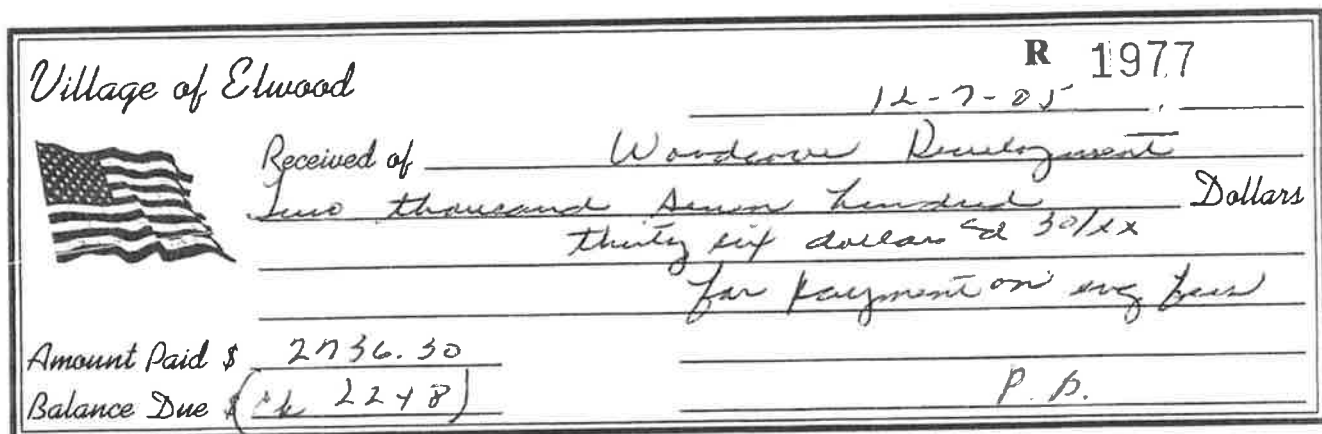 Village of Elwood
R 1977
12-7-05
Received of Woodcove Development
Two thousand seven hundred Dollars
thirty six dollars and 30/xx
for payment on eng fees
Amount Paid $ 2736.30
Balance Due $ (ck 2248)
P.D.